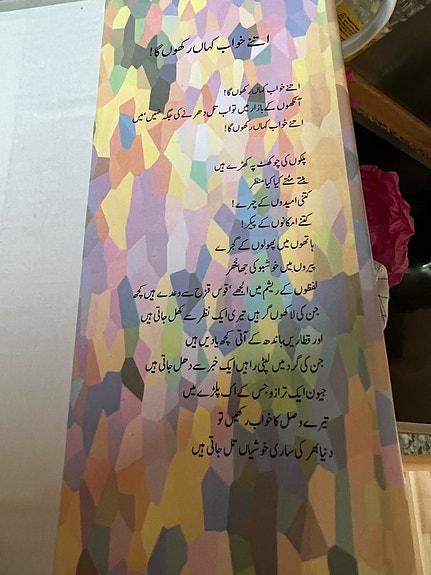 اتنے خواب کہاں رکھوں گا!
اتنے خواب کہاں رکھوں گا!
آنکھوں کے بازار میں تو اب تل دھرنے کی جگہ نہیں میں
اتنے خواب کہاں رکھوں گا!
پلکوں کی چوکھٹ پہ کھڑے ہیں
بنتے مٹتے کیا کیا منظر
کتنی امیدوں کے چہرے!
کتنے امکانوں کے پیکر!
ہاتھوں میں پھولوں کے گجرے
پیروں میں خوشبو کی جھانجھر
لفظوں کے ریشم میں الجھے، قوس قزح سے وعدے ہیں کچھ
جن کی لاکھوں گرہیں تیری ایک نظر سے کھل جاتی ہیں
اور قطاریں باندھ کے آتی کچھ یادیں ہیں
جن کی گرد میں لپٹی راہیں ایک خبر سے دھل جاتی ہیں
جیون ایک ترازو جس کے اک پلڑے میں
تیرے وصل کا خواب رکھیں تو
دنیا بھر کی ساری خوشیاں تل جاتی ہیں